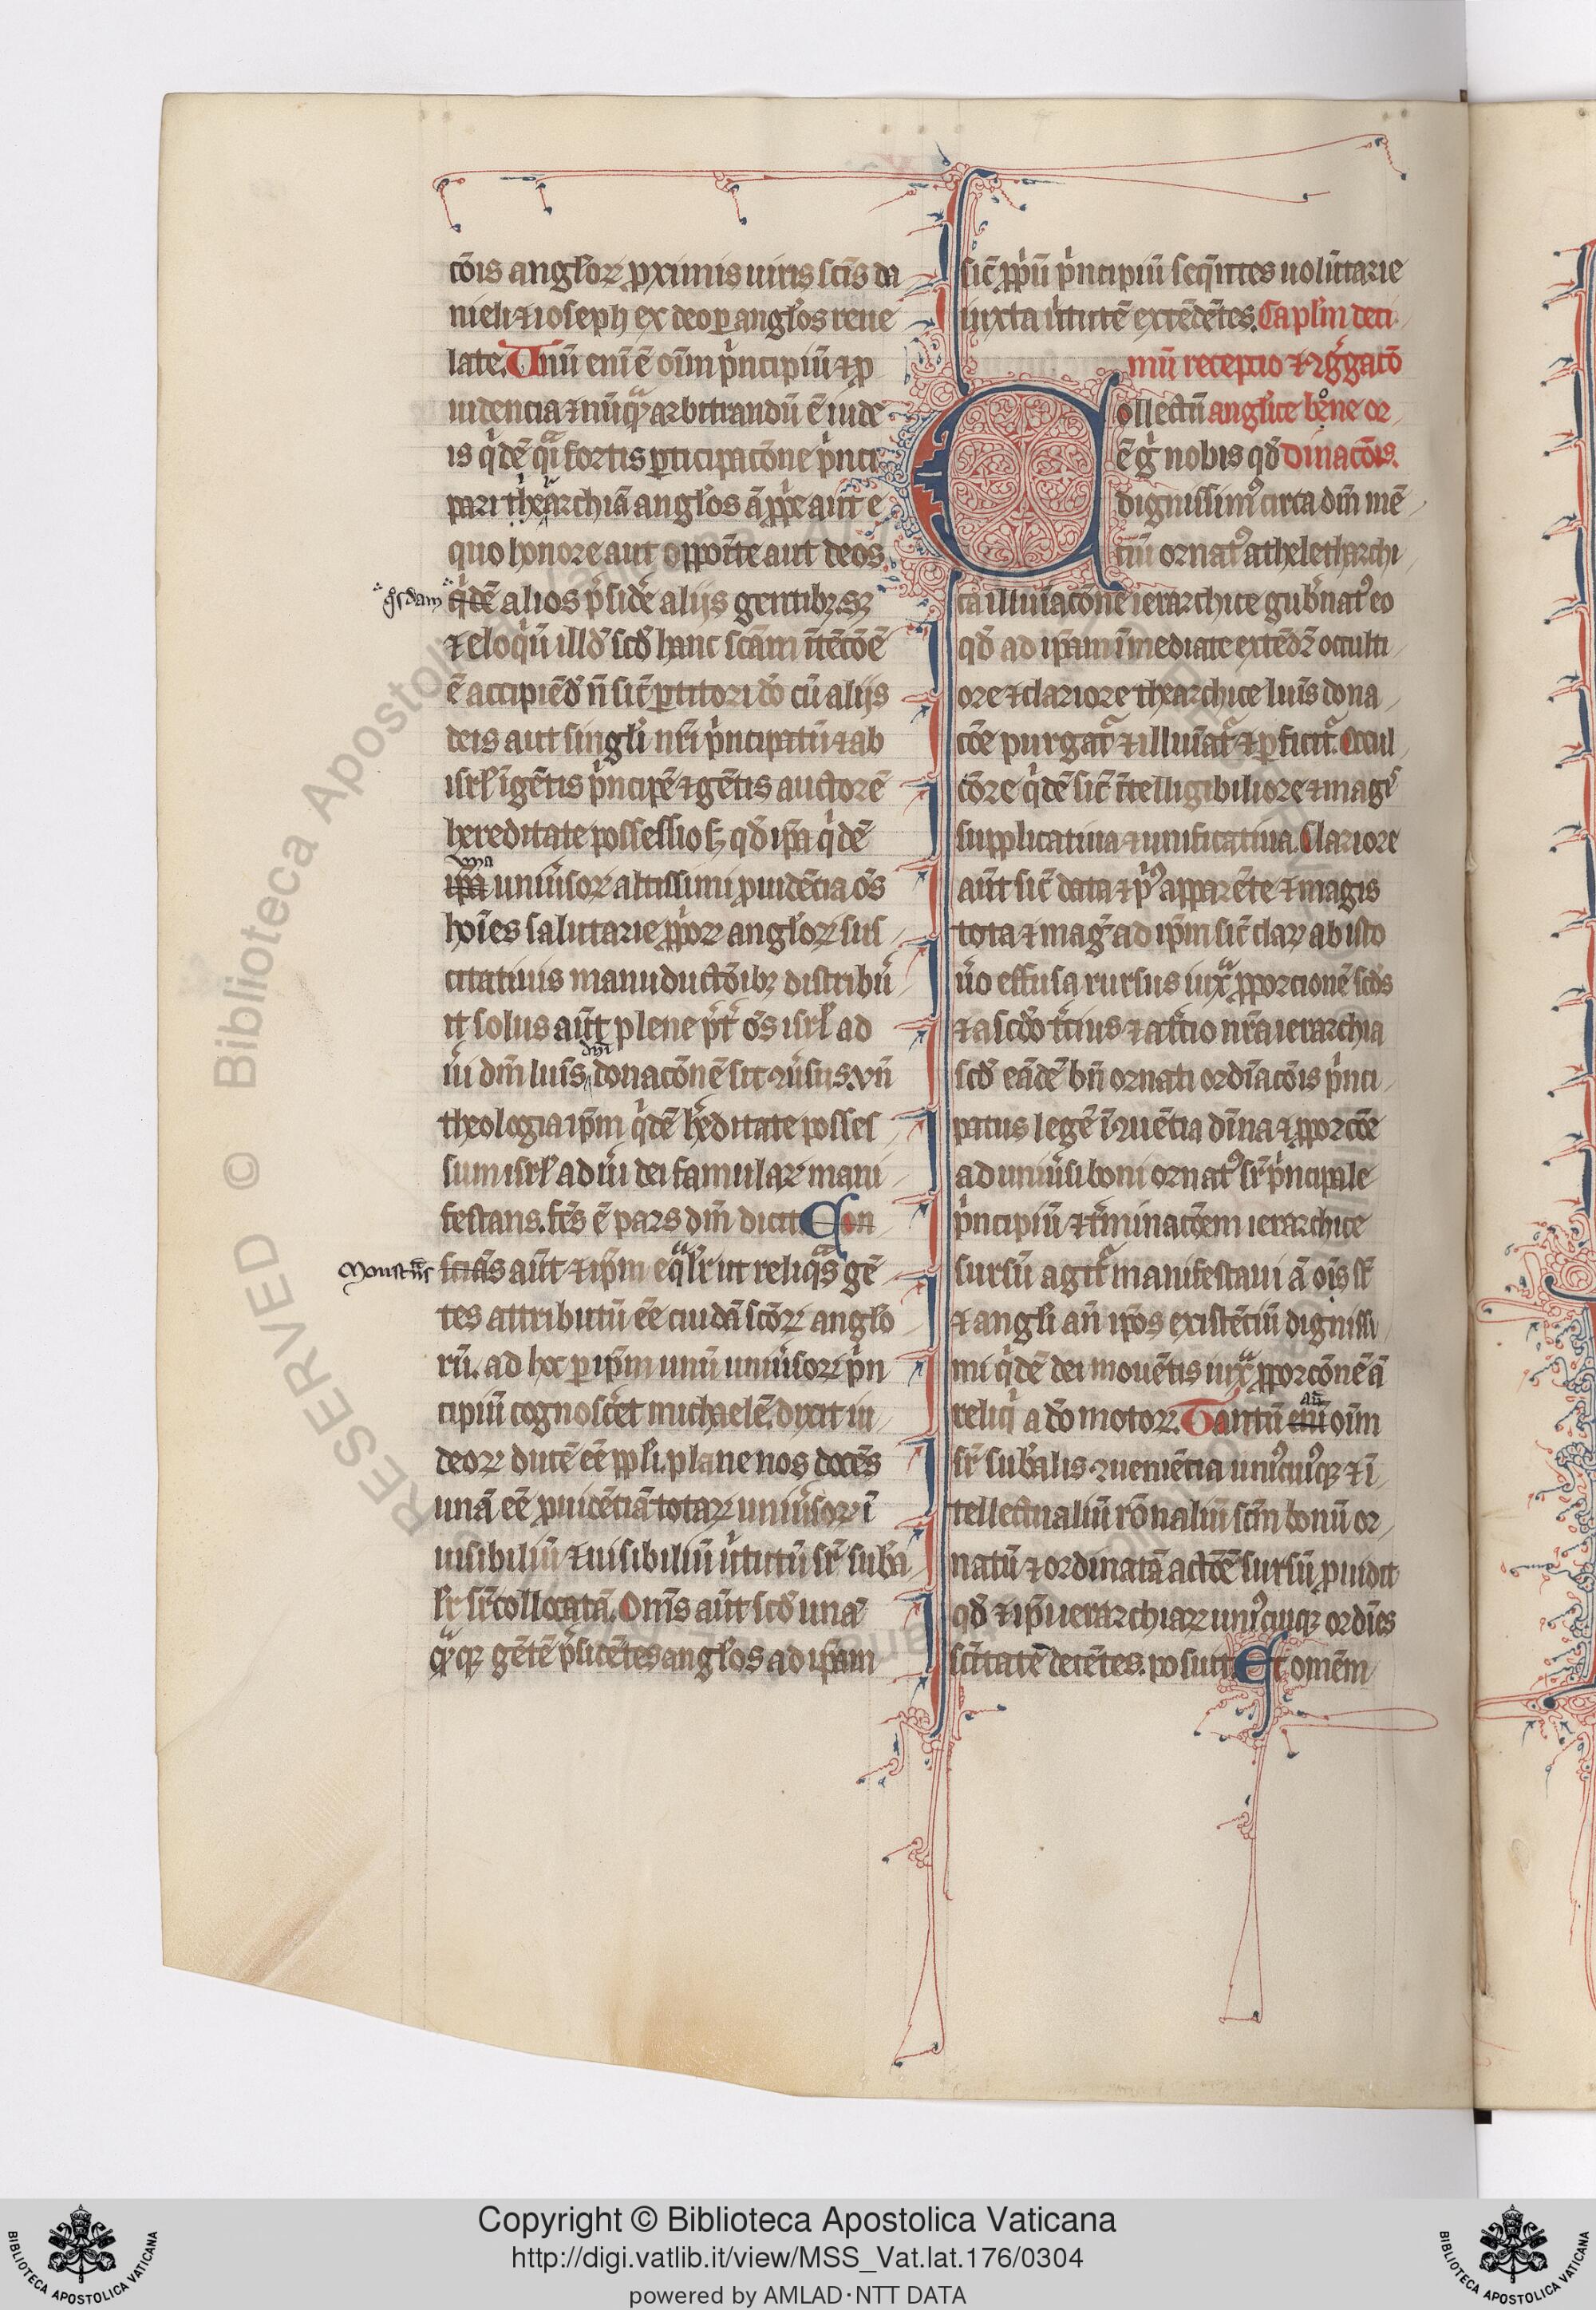 cōis angl'oꝝ ꝓximis uiris scīs da
nieli ⁊ ioseph ex deo ꝑ angl'os reue
late. Unū enī ē oīm p̄ncipiū ⁊ ꝓ
uidencia ⁊ nūq̄ arbitrandū ē iude
is q̄dē q̄i sortis ꝑticipacōne p̄nci
pari thearchiā angl'os
quo honore aut opporte aut deos
q̄dē alios p̄sidē alijs gentibꝫ sꝫ
qͦsdam
⁊ eloqͥū illđ scđ hanc scām ītēcōē
ē accipiēđ n̄ sic̄ ꝑtitori đo cū alijs
deis aut singl'i nr̄i p̄ncipatū ⁊ ab
isrl' ī gētis p̄ncipē ⁊ gētis auctorē
hereditate possessio sꝫ qđ ip̄a q̄dē
una
ip̄a uniūsoꝝ altissimi ꝓuidēcia oēs
hoīes salutarie ꝓp̄oꝝ angl'oꝝ sus
citatiuis manuductōibꝫ distribū
it solus aūt plene p̄t̄ oēs isrl' ad
ūi dm̄ luīs donacōnē sit ꝯūsus. vn̄
dn̄i
theologia ip̄m q̄dē h̄editate posses
sum isrl' ad ūi dei famulaꝝ mani
festans. fc̄s ē pars dm̄ dicit Con
Monstrās
aūt ⁊ ip̄m eq̄lr̄ ut reliq̄s gē
tes attributū eē cuidā scōꝝ anglo
rū. ad hoc ꝑ ip̄m unū uniūsoꝝ p̄n
cipiū cognoscēt michaelē. dixit iu
deoꝝ ducē eē ppl'i. plane nos docēs
unā eē ꝓuidēciā totaꝝ uniūsoꝝ ī
uisibiliū ⁊ uisibiliū ūtutū sr̄ sub̄a
lr̄ sr̄collocatā. Om̄s aūt scđ una
q̄qꝫ gētē p̄sidētes angl'os ad ip̄am
sic̄ ꝓp̄ū p̄ncipiū seq̄ntes uolūtarie
iuxta ūtutē extēdētes. Capl'm deci
mū recepcio ⁊ ꝯg̊gacō
Collectū anglice bn̄e or
ē g̊ nobis qđ dinacōis.
dignissimꝰ circa dm̄ mē
tiū ornatꝰ a theletharchi
ca illuīacōne ierarchice gub̄natꝰ eo
qđ ad ip̄am īmediate extēdꝝ occulti
ore ⁊ clariore thearchice luīs dona
cōe purgat̄ ⁊ illuīat̄ ⁊ ꝑficit̄. Occul
cōre q̄dē sic̄ ītelligibiliore ⁊ magˢ
supplicatiua ⁊ unificatiua. Clariore
aūt sic̄ data ⁊ p̄ꝰ apparēte ⁊ magis
tota ⁊ mag̊ ad ip̄m sic̄ claꝝ ab isto
ūo effusa rursus iuxͣ ꝓporcionē scđs
⁊ a scđo t̄cius ⁊ a t̄cio nr̄a ierarchia
scđ eādē bn̄ ornati ordīacōis p̄nci
patus legē ī ꝯuētia dīna ⁊ ꝓporcōe
ad uniūsi boni ornatꝰ sr̄p̄ncipale
p̄ncipiū ⁊ t̄minacōem ierarchice
sursū agit̄ manifestaui ā oīs sr̄
⁊ angl'i an̄ ip̄os existētiū digniss
mi q̄dē dei mouētis iuxͣ ꝓporcōnē ā
reliqͥ a đo motoꝝ. Tantū enī oīm
aū
sr̄ sub̄alis ꝯueniēcia unicuiqꝫ ⁊ ī
tellectualiū rōnaliū scm̄ bonū or
natū ⁊ ordinatā actōē sursū ꝓuidit
qđ ⁊ ip̄i ierarchiaꝝ unicuiqꝫ ordīes
sc̄itatē decētes. posuit Et omēm
Copyright © Biblioteca Apostolica Vaticana
http://digi.vatlib.it/view/MSS_Vat.lat.176/0304
powered by AMLAD·NTT DATA
BIBLIOTECA APOSTOLICA VATICANA
BIBLIOTECA APOSTOLICA VATICANA
RESERVED © Biblioteca Apostolica Vaticana